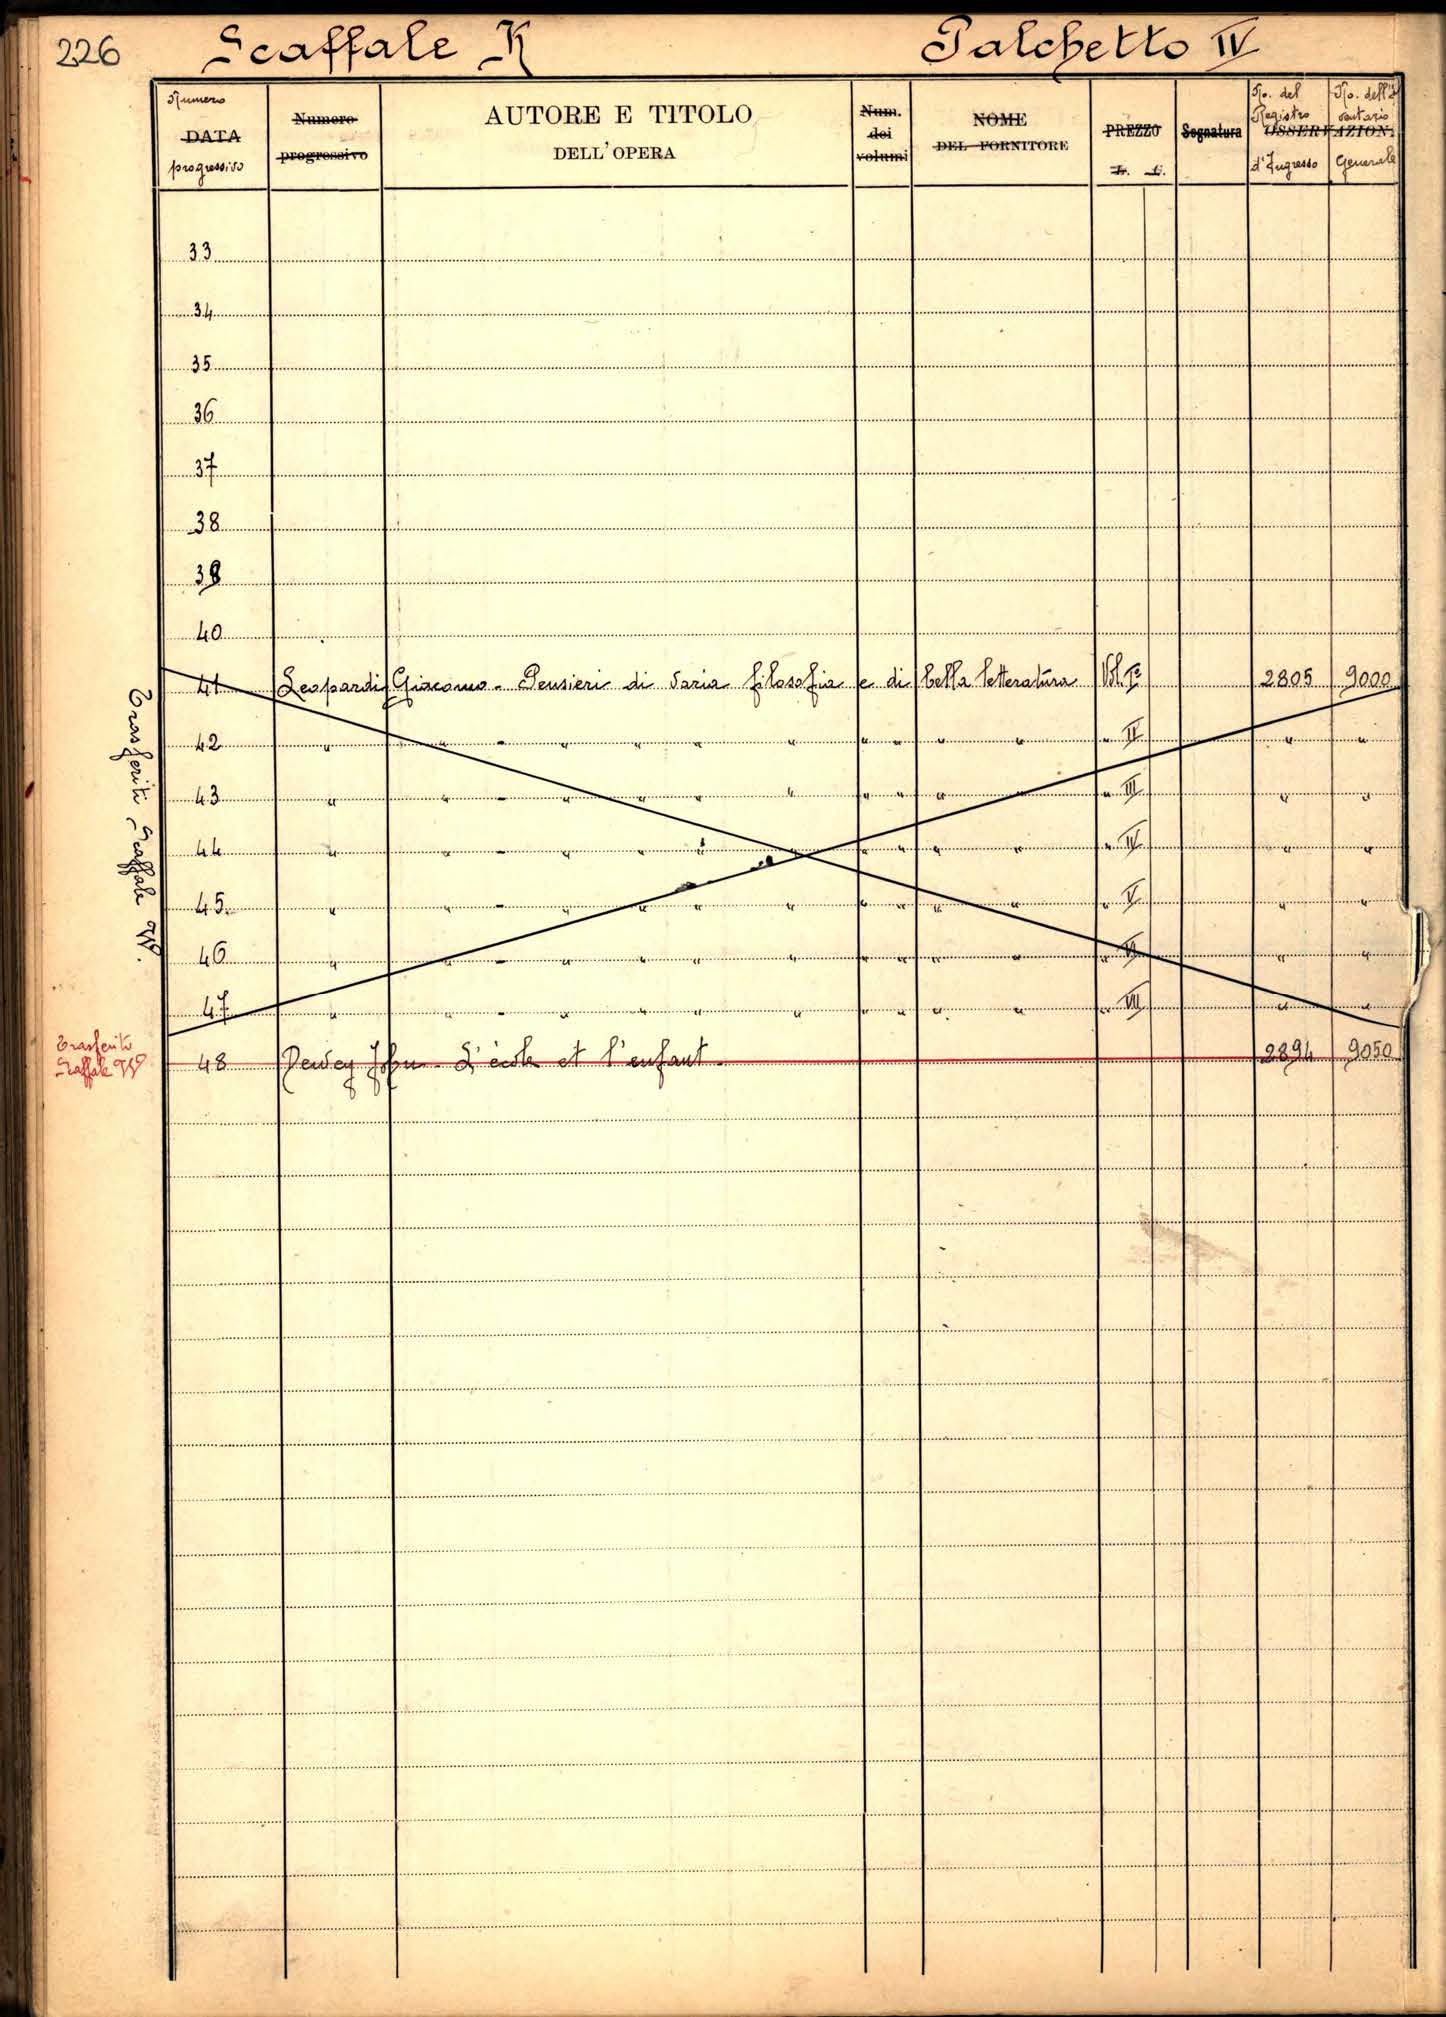 226 Scaffale K Palchetto IV
Numero DATA progressivo
Numero progressivo
AUTORE E TITOLO
DELL'OPERA
Num. dei volumi
NOME
DEL FORNITORE
PREZZO
L. C.
Segnatura
OSSERVAZIONI
No. del Registro d'Ingresso
No. dell'Inventario Generale
33
34
35
36
37
38
39
40
41 Leopardi Giacomo - Pensieri di varia filosofia e di bella letteratura Vol. I° 2805 9000
42 " " - " " " " " " " " " II " "
43 " " - " " " " " " " " " III " "
44 " " - " " " " " " " " " IV " "
45 " " - " " " " " " " " " V " "
46 " " - " " " " " " " " " VI " "
47 " " - " " " " " " " " " VII " "
Trasferiti Scaffale W.
48 Dewey John - L'école et l'enfant. 2894 9050
Trasferito
Scaffale W